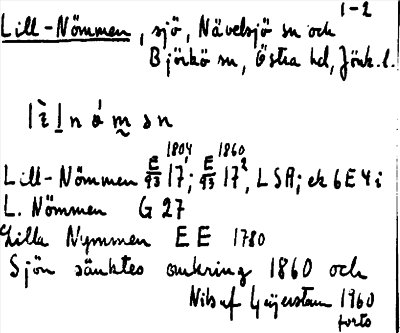 1-2
Lill-Nömmen, sjö, Nävelsjö sn och
Björkö sn, Östra hd, Jönk. l.
Lill-Nömmen E/93 17¹ 1804; E/93 17² 1860, LSA; ek 6E4i
L. Nömmen G 27
Lilla Nymmen EE 1780
Sjön sänktes omkring 1860 och
Nils af Geijerstam 1960
forts